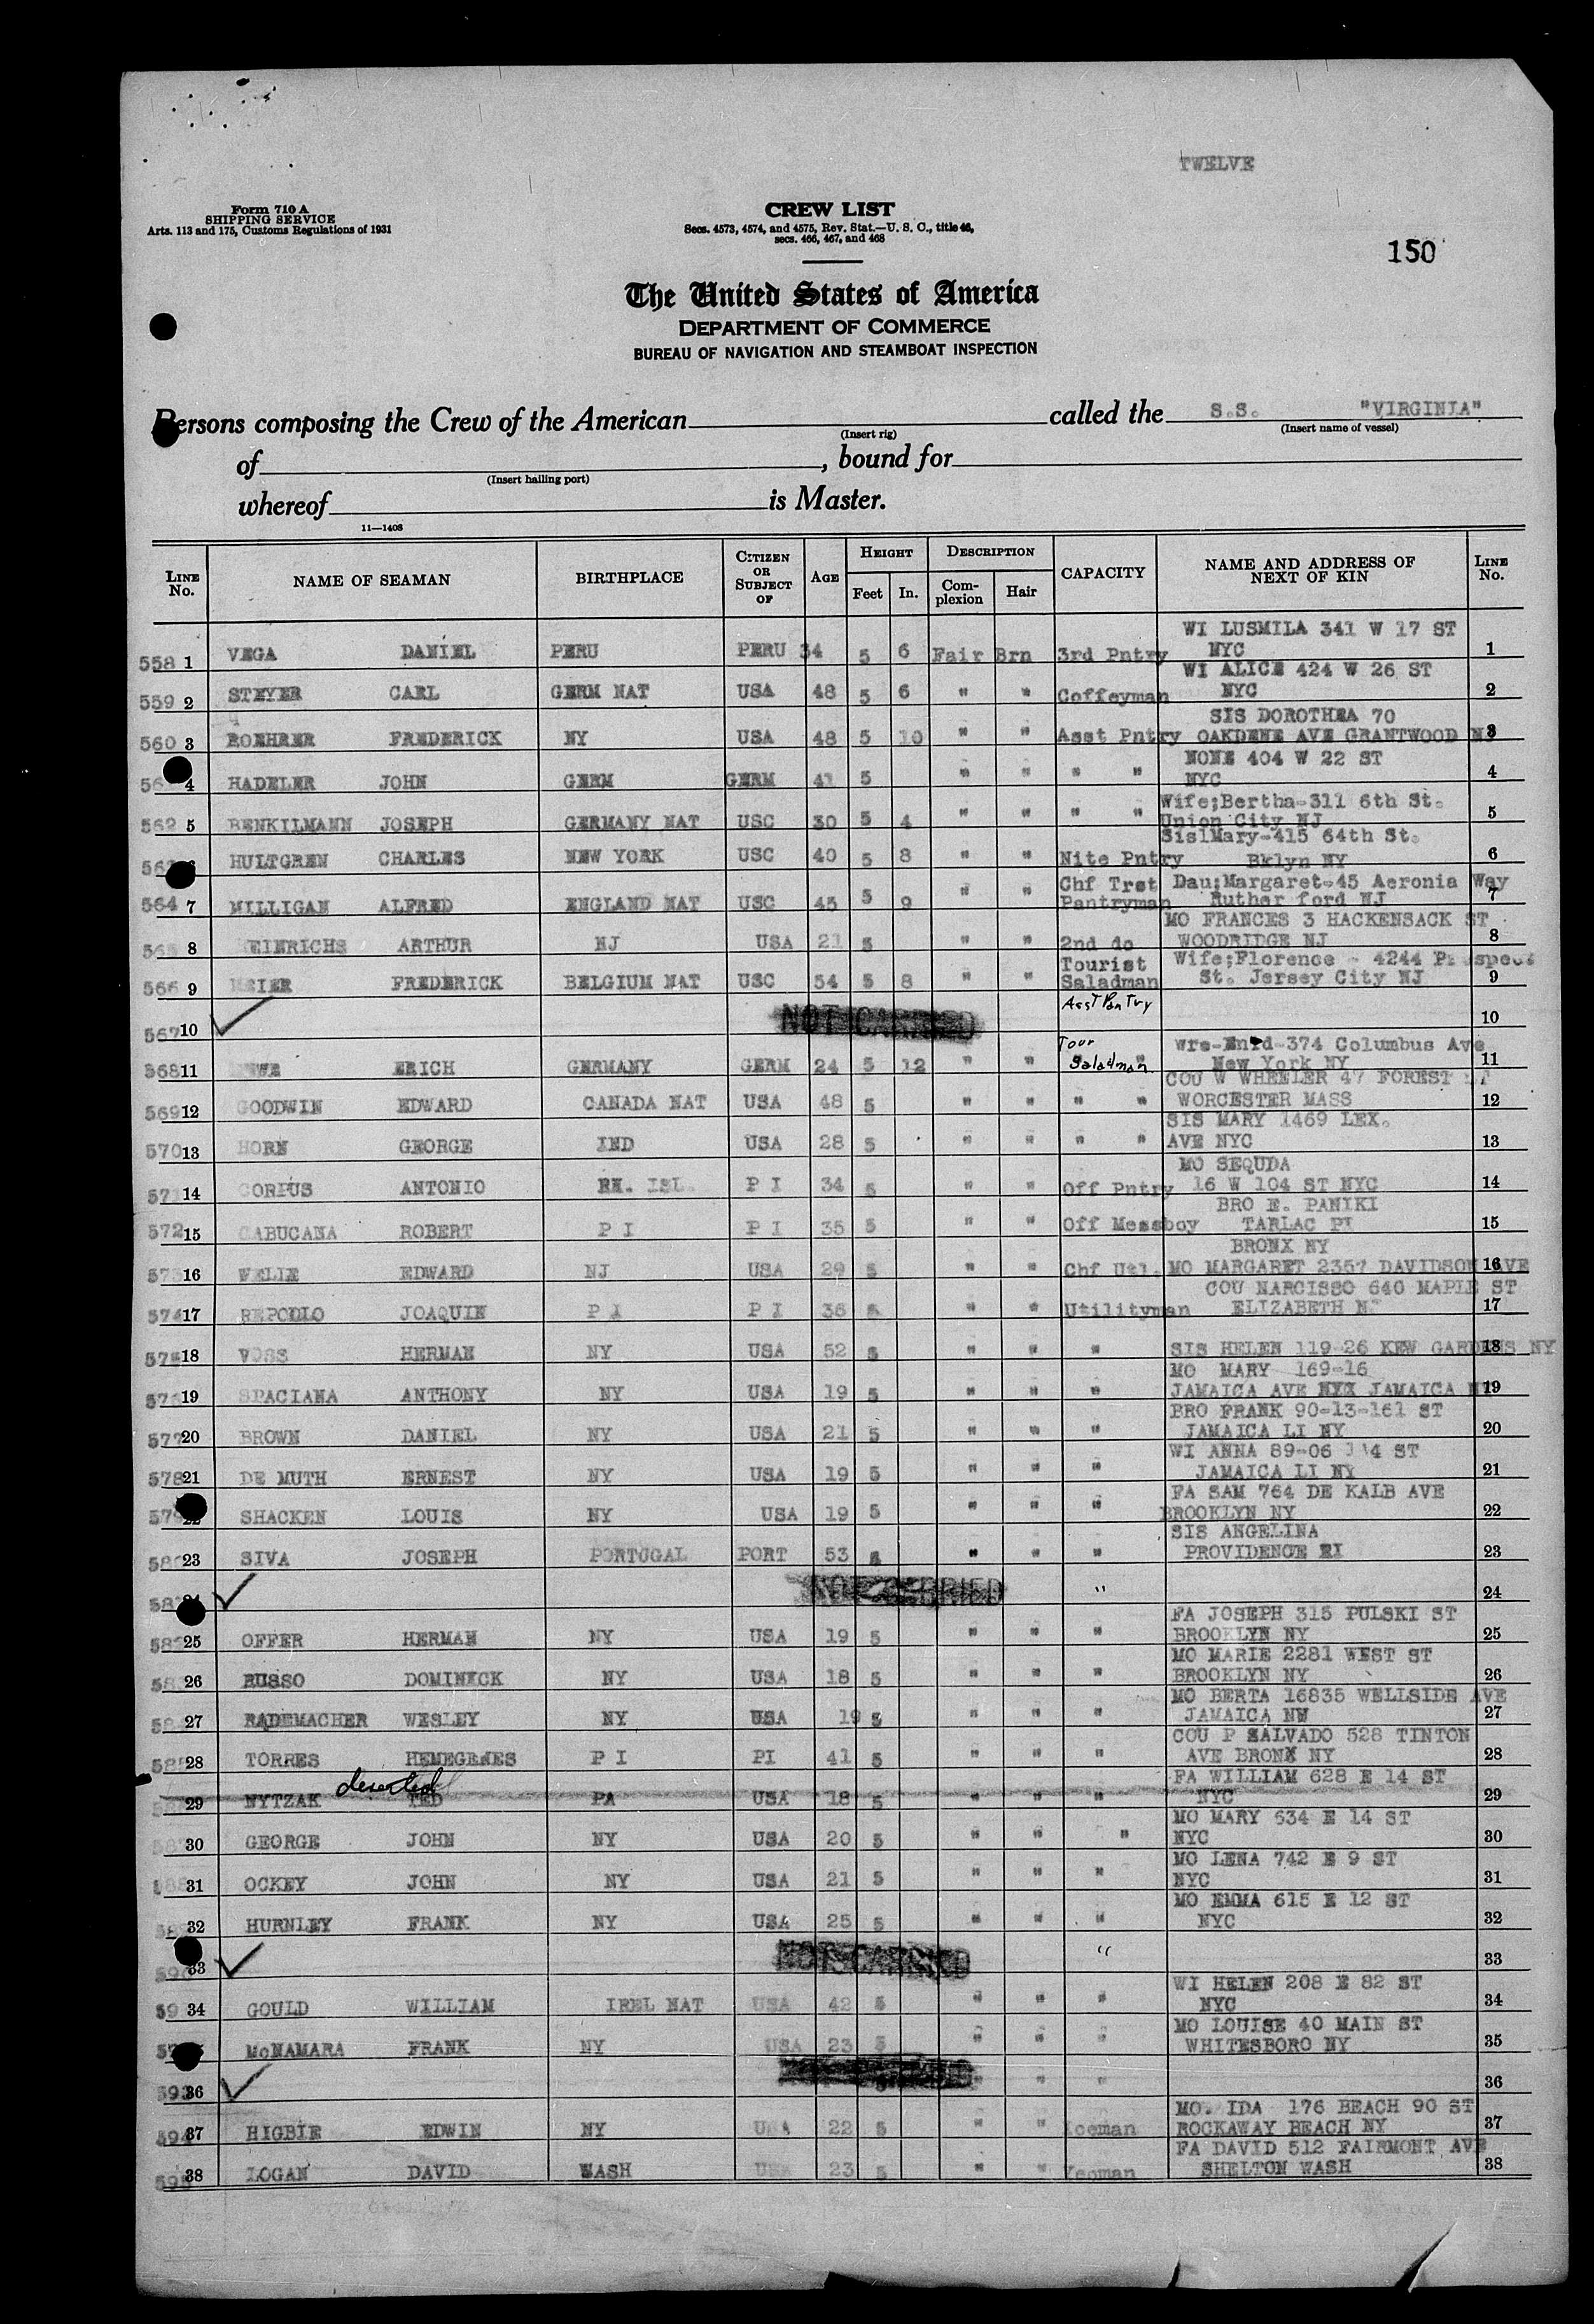 TWELVE
Form 710 A
SHIPPING SERVICE
Arts. 113 and 175, Customs Regulations of 1931
CREW LIST
Secs. 4573, 4574, and 4575, Rev. Stat.—U. S. C., title 46,
secs. 466, 467, and 468
150
The United States of America
DEPARTMENT OF COMMERCE
BUREAU OF NAVIGATION AND STEAMBOAT INSPECTION
Persons composing the Crew of the American called the S.S. "VIRGINIA"
(Insert rig) (Insert name of vessel)
of , bound for
(Insert hailing port)
whereof is Master.
11—1408
LINE No. NAME OF SEAMAN BIRTHPLACE CITIZEN OR SUBJECT OF AGE HEIGHT Feet In. DESCRIPTION Complexion Hair CAPACITY NAME AND ADDRESS OF NEXT OF KIN LINE No.
WI LUSMILA 341 W 17 ST
558 1 VEGA DANIEL PERU PERU 34 5 6 Fair Brn 3rd Pntry NYC 1
WI ALICE 424 W 26 ST
559 2 STEYER CARL GERM NAT USA 48 5 6 " " Coffeyman NYC 2
SIS DOROTHEA 70
560 3 ROEHRER FREDERICK NY USA 48 5 10 " " Asst Pntry OAKDENE AVE GRANTWOOD NJ 3
NONE 404 W 22 ST
4 HADELER JOHN GERM GERM 41 5 " " " " NYC 4
Wife;Bertha-311 6th St.
562 5 BENKILMANN JOSEPH GERMANY NAT USC 30 5 4 " " " " Union City NJ 5
SislMary-415 64th St.
6 HULTGREN CHARLES NEW YORK USC 40 5 8 " " Nite Pntry Bklyn NY 6
Chf Trst Dau;Margaret-45 Aeronia Way
564 7 MILLIGAN ALFRED ENGLAND NAT USC 45 5 9 " " Pantryman Ruther ford NJ 7
MO FRANCES 3 HACKENSACK ST
565 8 HEINRICHS ARTHUR NJ USA 21 5 " " 2nd do WOODRIDGE NJ 8
Tourist Wife;Florence - 4244 Prospect
566 9 MEIER FREDERICK BELGIUM NAT USC 54 5 8 " " Saladman St. Jersey City NJ 9
Asst Pantry
567 10 ✓ NOT CARRIED 10
Tour 374 Columbus Ave
568 11 ERICH GERMANY GERM 24 5 12 " " Saladman New York NY 11
COU W WHEELER 47 FOREST ST
569 12 GOODWIN EDWARD CANADA NAT USA 48 5 " " " " WORCESTER MASS 12
SIS MARY 1469 LEX.
570 13 HORN GEORGE IND USA 28 5 " " " " AVE NYC 13
MO SEQUDA
571 14 CORPUS ANTONIO PH. ISL. P I 34 5 " " Off Pntry 16 W 104 ST NYC 14
BRO E. PANIKI
572 15 CABUCANA ROBERT P I P I 35 5 " " Off Messboy TARLAC PI 15
BRONX NY
573 16 WELIE EDWARD NJ USA 29 5 " " Chf Utl. MO MARGARET 2357 DAVIDSON AVE 16
COU NARCISSO 640 MAPLE ST
574 17 REPODLO JOAQUIN P I P I 36 5 " " Utilityman ELIZABETH NJ 17
575 18 VOSS HERMAN NY USA 52 5 " " " SIS HELEN 119-26 KEW GARDENS NY 18
MO MARY 169-16
576 19 SPACIANA ANTHONY NY USA 19 5 " " " JAMAICA AVE NYX JAMAICA NY 19
BRO FRANK 90-13-161 ST
577 20 BROWN DANIEL NY USA 21 5 " " " JAMAICA LI NY 20
WI ANNA 89-06 ST
578 21 DE MUTH ERNEST NY USA 19 5 " " " JAMAICA LI NY 21
FA SAM 764 DE KALB AVE
579 22 SHACKEN LOUIS NY USA 19 5 " " " BROOKLYN NY 22
SIS ANGELINA
580 23 SIVA JOSEPH PORTUGAL PORT 53 5 " " " PROVIDENCE RI 23
24 ✓ NOT CARRIED " 24
FA JOSEPH 315 PULSKI ST
582 25 OFFER HERMAN NY USA 19 5 " " " BROOKLYN NY 25
MO MARIE 2281 WEST ST
26 RUSSO DOMINECK NY USA 18 5 " " " BROOKLYN NY 26
MO BERTA 16835 WELLSIDE AVE
27 RADEMACHER WESLEY NY USA 19 5 " " " JAMAICA NW 27
COU P SALVADO 528 TINTON
585 28 TORRES HEMEGENES P I PI 41 5 " " " AVE BRONX NY 28
deserted FA WILLIAM 628 E 14 ST
29 NYTZAK TED PA USA 18 5 " " " NYC 29
MO MARY 634 E 14 ST
30 GEORGE JOHN NY USA 20 5 " " " NYC 30
MO LENA 742 E 9 ST
31 OCKEY JOHN NY USA 21 5 " " " NYC 31
MO EMMA 615 E 12 ST
32 HURNLEY FRANK NY USA 25 5 " " " NYC 32
33 ✓ NOT CARRIED " 33
WI HELEN 208 E 82 ST
34 GOULD WILLIAM IREL NAT USA 42 5 " " " NYC 34
MO LOUISE 40 MAIN ST
McNAMARA FRANK NY USA 23 5 " " " WHITESBORO NY 35
593 36 ✓ " " " 36
MO. IDA 176 BEACH 90 ST
594 37 HIGBIE EDWIN NY USA 22 5 " " ROCKAWAY BEACH NY 37
FA DAVID 512 FAIRMONT AVE
595 38 LOGAN DAVID WASH 23 5 " " Yeoman SHELTON WASH 38